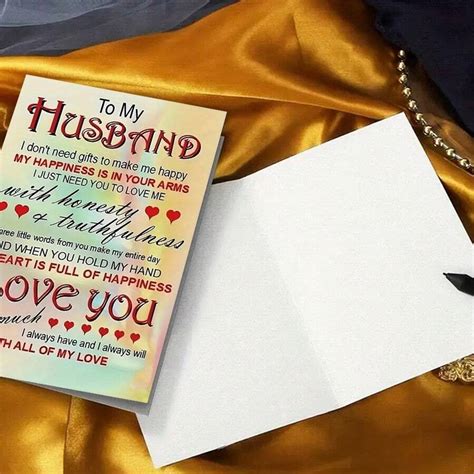 To My
HUSBAND
I don't need gifts to make me happy
MY HAPPINESS IS IN YOUR ARMS
I JUST NEED YOU TO LOVE ME
with honesty
& truthfulness
three little words from you make my entire day
AND WHEN YOU HOLD MY HAND
HEART IS FULL OF HAPPINESS
LOVE YOU
much
I always have and I always will
WITH ALL OF MY LOVE